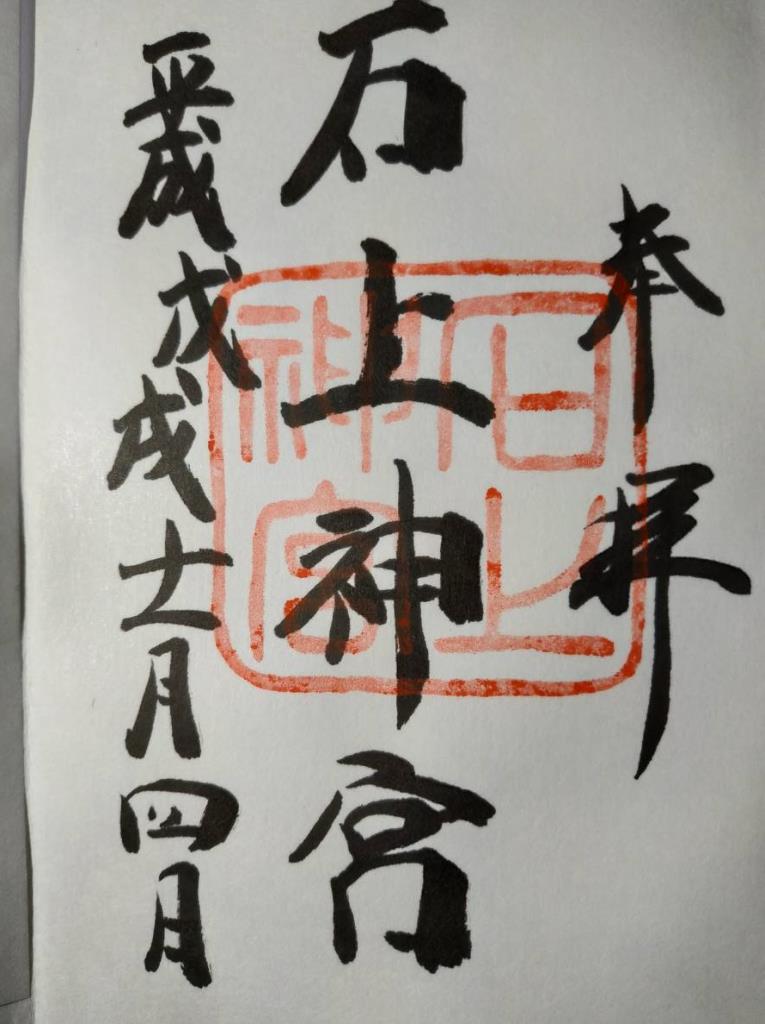 奉拝
石上神宮
平成戊戌十一月四日
石上
神宮